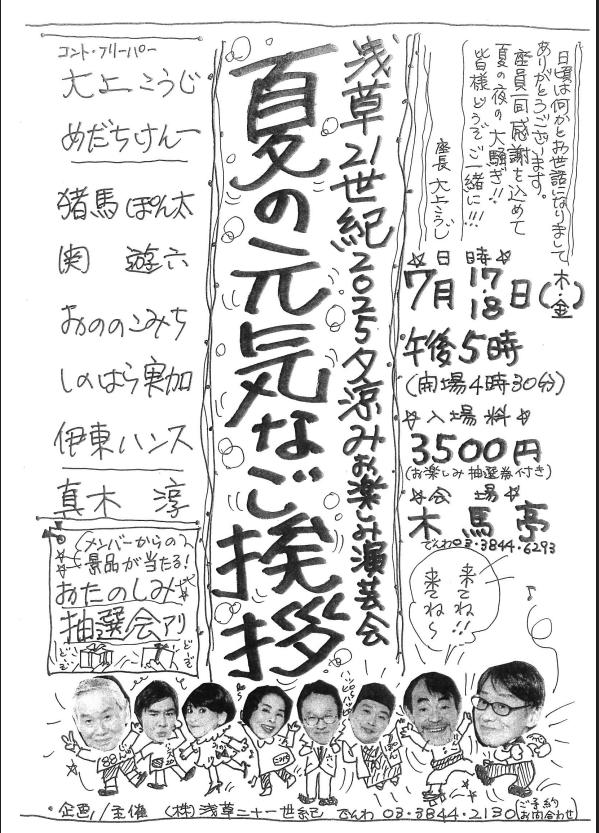 日頃は何かとお世話になりまして、
ありがとうございます。
座員一同感謝を込めて
夏の夜の大騒ぎ!!
皆様どうぞご一緒に!!!
座長 大上こうじ
浅草21世紀2025夕涼みお楽しみ演芸会
夏の元気なご挨拶
コント・フリーパー
大上こうじ
めだちけん一
猪馬ぽん太
関 遊六
おののこみち
しのはら実加
伊東ハンス
真木 淳
☆日時☆
7月17・18日(木・金)
午後5時
(開場4時30分)
☆入場料☆
3500円
(お楽しみ抽選券付き)
☆会場☆
木馬亭
でんわ03・3844・6293
メンバーからの
景品が当たる!
おたのしみ
抽選会アリ
どきどき
どきどき
来てね!!
来てね〜
ハッピハッピ
企画/主催 (株)浅草二十一世紀 でんわ 03・3844・2130(ご予約お問合わせ)